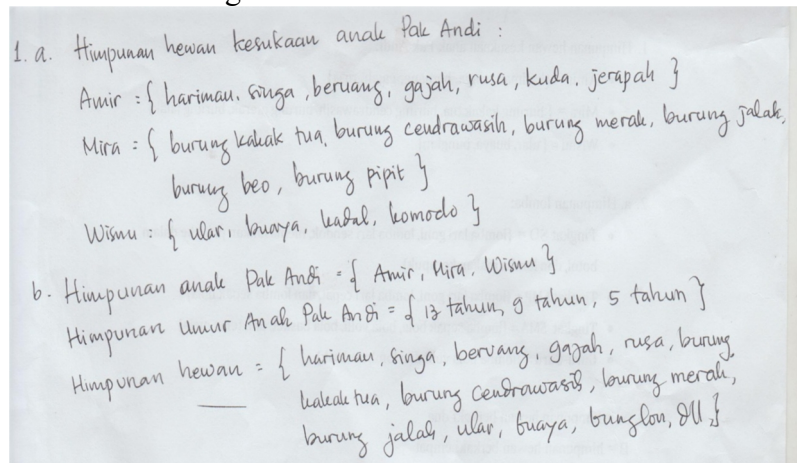 1. a. Himpunan hewan kesukaan anak Pak Andi :
Amir : { harimau, singa, beruang, gajah, rusa, kuda, jerapah }
Mira : { burung kakak tua, burung cendrawasih, burung merak, burung jalak,
burung beo, burung pipit }
Wisnu : { ular, buaya, kadal, komodo }
b. Himpunan anak Pak Andi = { Amir, Mira, Wisnu }
Himpunan Umur Anak Pak Andi = { 12 tahun, 9 tahun, 5 tahun }
Himpunan hewan = { harimau, singa, beruang, gajah, rusa, burung
kakak tua, burung cendrawasih, burung merak,
burung jalak, ular, buaya, bunglon, dll }